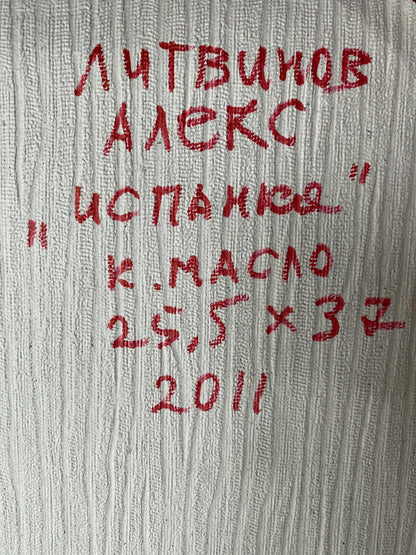 ЛИТВИНОВ
АЛЕКС
"ИСПАНКА"
К. МАСЛО
25,5 × 37
2011